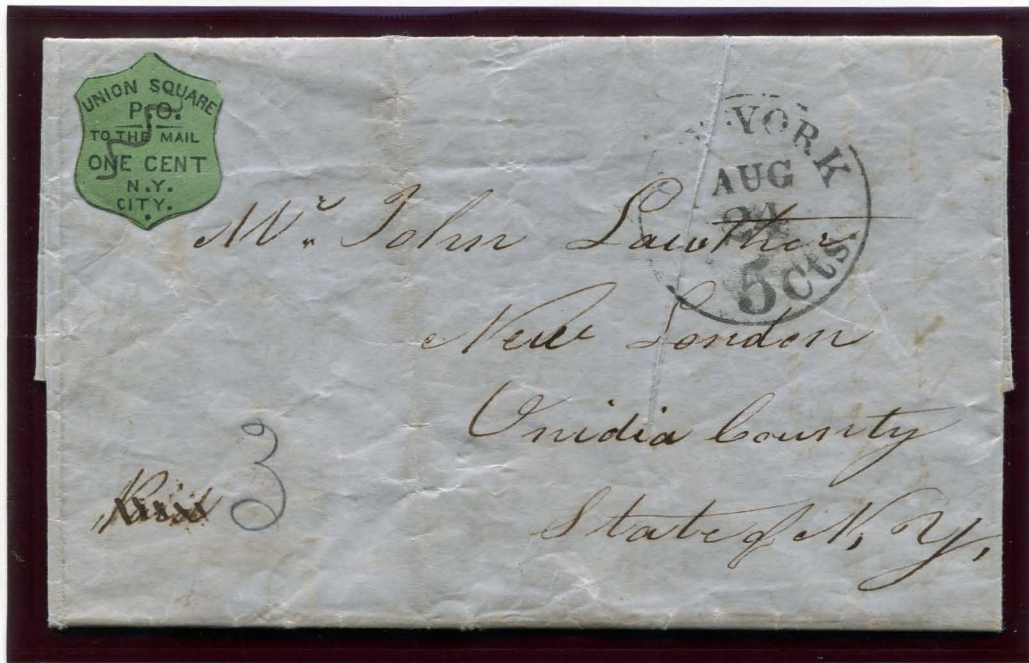 UNION SQUARE
P.O.
TO THE MAIL
ONE CENT
N.Y.
CITY.
YORK
AUG
24
5 cts
Mr. John Lawther
New London
Onidia County
State of N. Y.
3